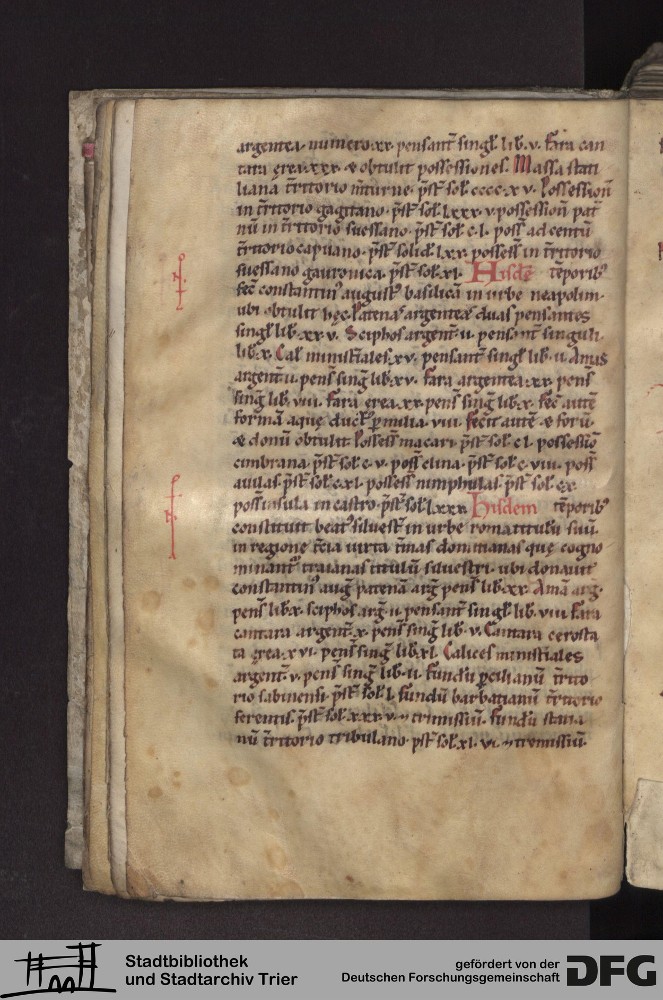 argentea numero xx pensant̄ singl̄ lib. v. Fara can
tara ęrea xxx & obtulit possessiones. Massa stati
liana t̄rritorio mturne p̄st̄ sol cccc x v. Possession̄
in t̄rritorio gagitano p̄st̄ sol lxxx v possession̄ pat̄
nū in t̄rritorio suessano p̄st̄ sol c l. poss̄ ad centū
t̄rritorio capuano p̄st̄ solid lxx possess̄ in t̄rritorio
suessano gauronica p̄st̄ sol xl. Hisdē tēporib᷒
fec̄ constantin᷒ august᷒ basilicā in urbe neapolim
ubi obtulit hęc. Patenas argenteas duas pensantes
singl̄ lib xx v. Sciphos argent̄ ii pensant̄ singuli
lib x. Cal̄ minist̄iales xv pensant̄ singl̄ lib ii. Amas
argent̄ ii pens̄ sinḡ lib xv. Fara argentea xx pens̄
sinḡ lib viii. Fara ęrea xx pens̄ sinḡ lib x. Fec̄ autē
formā aquę duct᷒ p milia viii. Fecit autē & forū
& donū obtulit. Possess̄ macari p̄st̄ sol c l. possessio
cimbrana p̄st̄ sol c v poss̄ clina p̄st̄ sol c viii poss̄
auilas p̄st̄ sol c xl possess̄ nimphulas p̄st̄ sol cx
poss̄ insula in castro p̄st̄ sol lxxx Hisdem tēporib᷒
constituit beat᷒ siluest̄ in urbe roma titulū suū
in regione t̄cia iuxta t̄mas domitianas quę cogno
minant᷒ traianas titulū siluestri ubi donauit
constantin᷒ aug̅ patenā arḡ pens̄ lib xx. Amā arḡ
pens̄ lib x. sciphos arḡ ii pensant̄ singl̄ lib viii. Fara
cantara argent̄ x pens̄ sinḡ lib v. Cantara cerosta
ta ęrea x vi pens̄ sinḡ lib xl. Calices minist̄iales
argent̄ v pens̄ sinḡ lib ii. Fundū percilianū t̄rito
rio sabinensi p̄st̄ sol l. fundū barbatianū t̄rritorio
ferentis p̄st̄ sol xxx v & trimissiū. fundū statia
nū t̄rritorio tribulano p̄st̄ sol xl vi & tremissiū
Stadtbibliothek
und Stadtarchiv Trier
gefördert von der
Deutschen Forschungsgemeinschaft
DFG